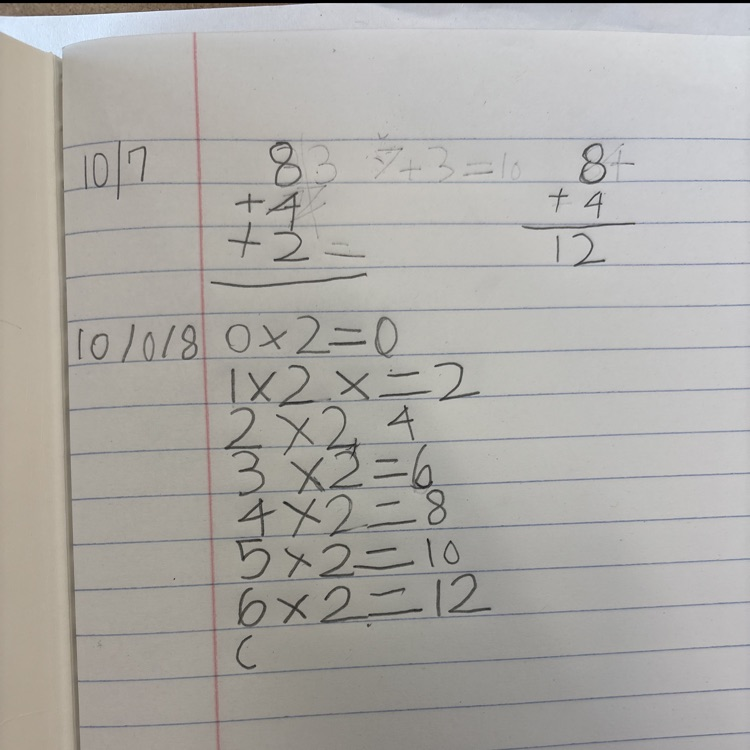 10/7 8 3 7+3=10 8+
+4 + 4
+2 = 12
10/0/8 0×2=0
1×2×=2
2×2 4
3×2=6
4×2=8
5×2=10
6×2=12
(